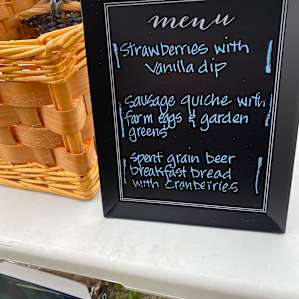 menu
Strawberries with
Vanilla dip
Sausage quiche with
farm eggs & garden
greens
spent grain beer
breakfast bread
with cranberries